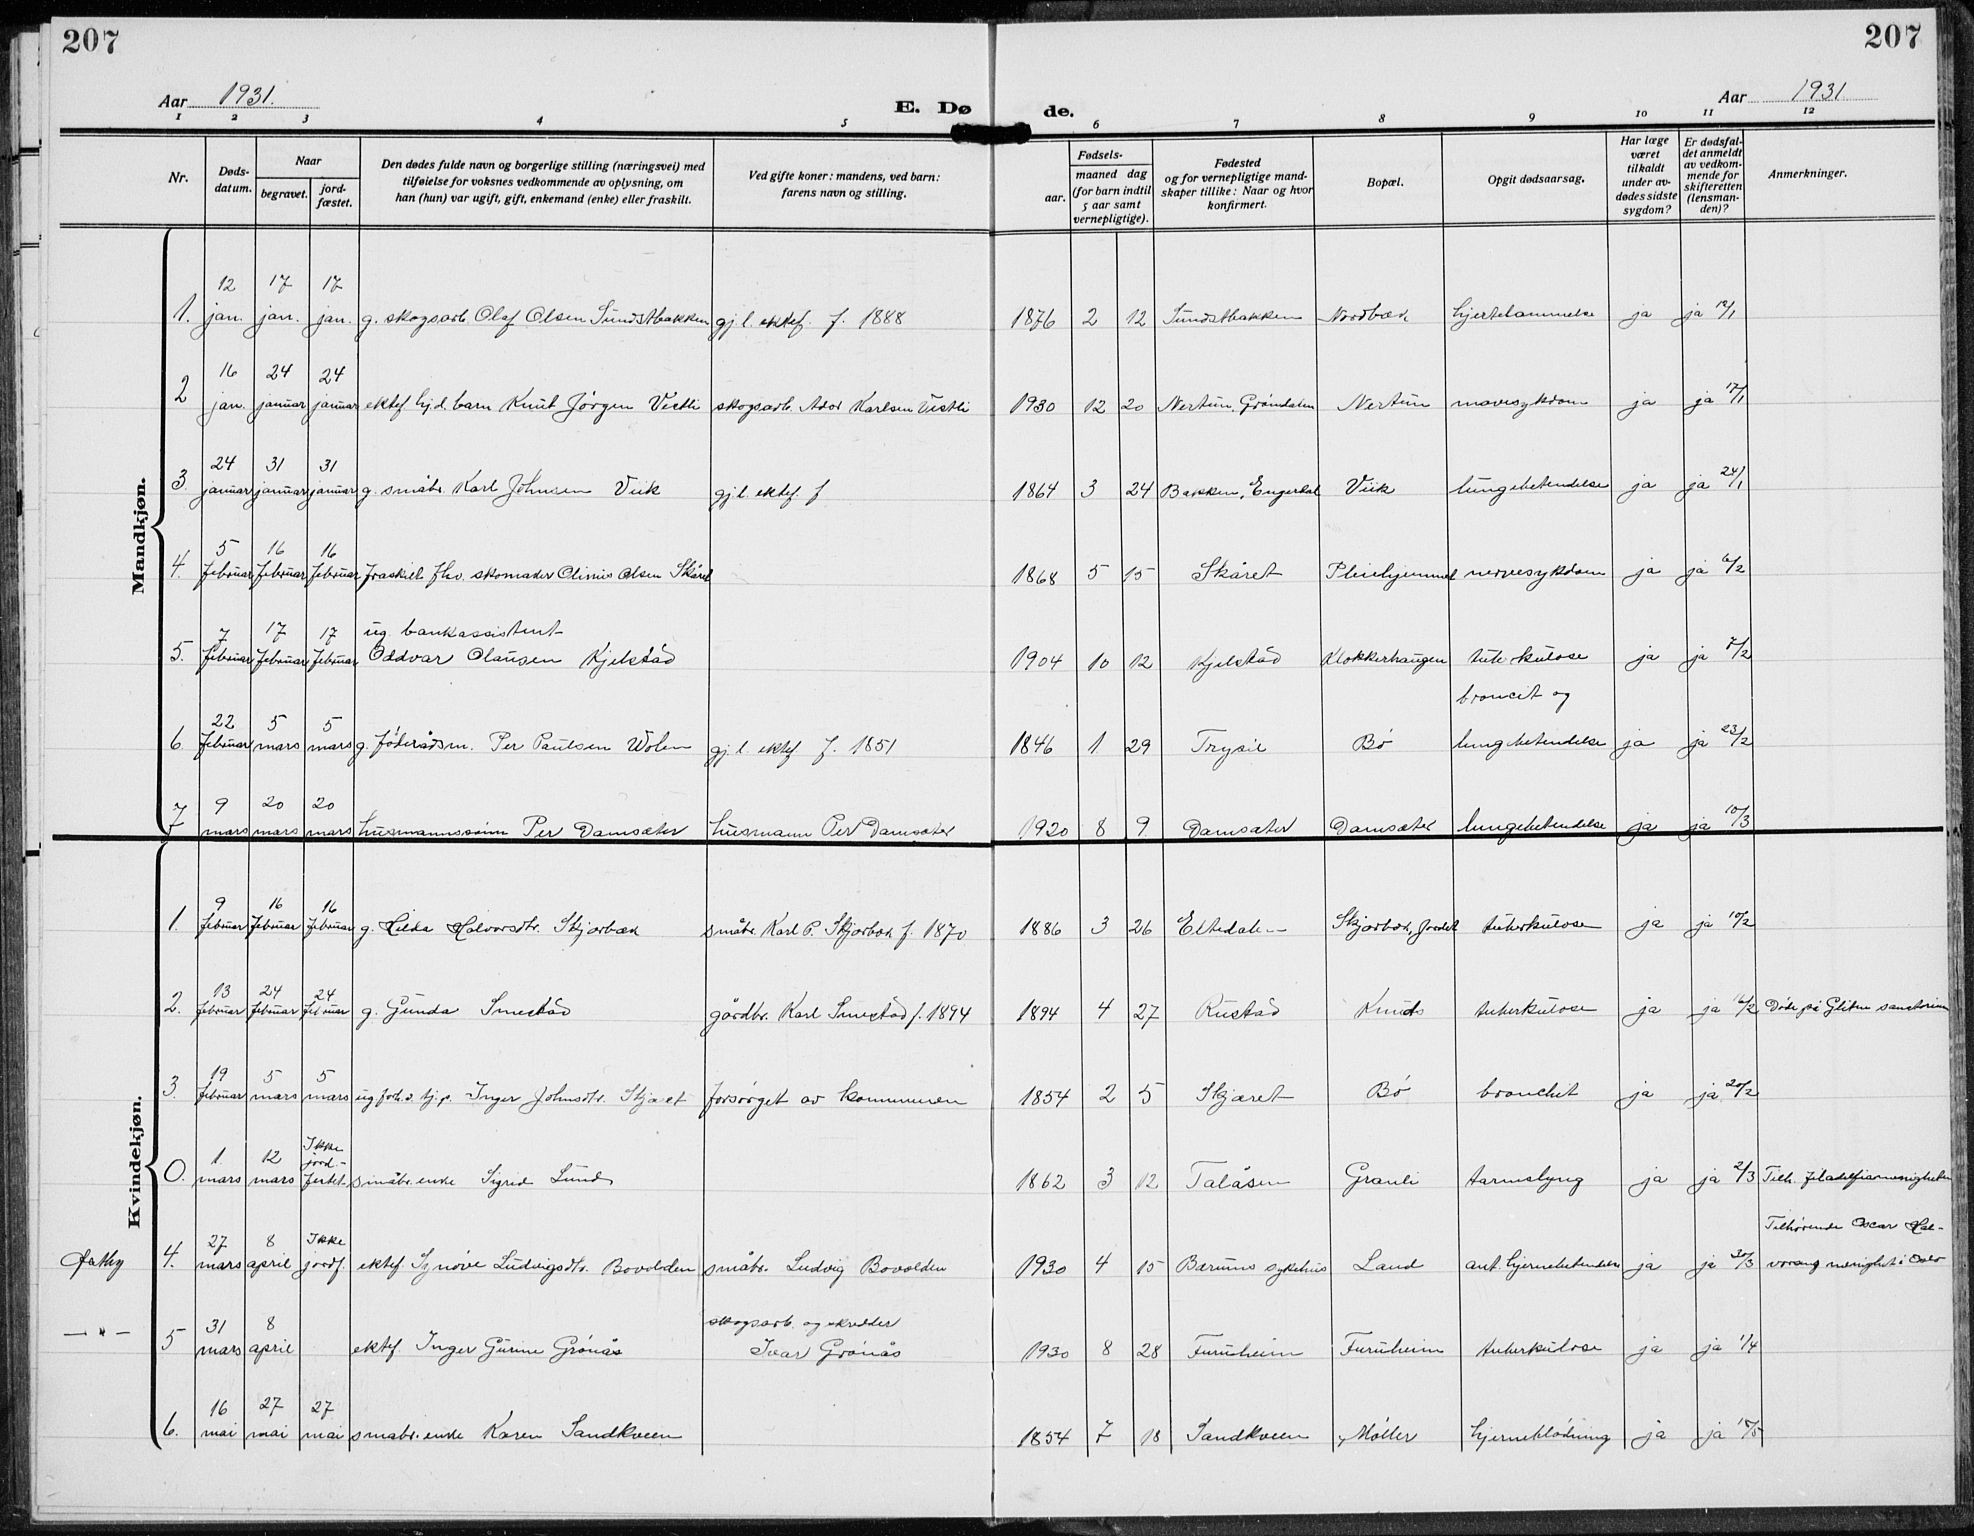 207
207
Aar 1931.
E. Dø
de.
Aar 1931
1 2 3 4 5 6 7 8 9 10 11 12
Nr.
Døds-
datum.
Naar
begravet.
jord-
fæstet.
Den dødes fulde navn og borgerlige stilling (næringsvei) med
tilføielse for voksnes vedkommende av oplysning, om
han (hun) var ugift, gift, enkemand (enke) eller fraskilt.
Ved gifte koner: mandens, ved barn:
farens navn og stilling.
Fødsels-
aar.
maaned dag
(for barn indtil
5 aar samt
vernepligtige).
Fødested
og for vernepligtige mand-
skaper tillike: Naar og hvor
konfirmert.
Bopæl.
Opgit dødsaarsag.
Har læge
været
tilkaldt
under av-
dødes sidste
sygdom?
Er dødsfal-
det anmeldt
av vedkom-
mende for
skifteretten
(lensman-
den)?
Anmerkninger.
Mandkjøn.
12 17 17
1. jan. jan. jan. g. skogsarb. Olaf Olsen Sundstbakken gj. l. ektef. f. 1888 1876 2 12 Sundstbakken Nordbæk hjertelammelse ja ja 12/1
16 24 24
2 jan. januar januar ektef hjd. barn Knut Jörgen Vestli skogsarb. Ador Karlsen Vestli 1930 12 20 Nertun, Gröndalen Nertun mavesykdom ja ja 17/1
24 31 31
3. januar januar januar g. småbr. Karl Johnsen Viik gj. l. ektef. f 1864 3 24 Bakken, Engerdal Viik lungebetendelse ja ja 24/1
5 16 16
4. februar februar februar fraskilt fhv. skomaker Olinius Olsen Skåret 1868 5 15 Skåret Pleiehjemmet nervesykdom ja ja 6/2
ug. bankassistent
7 17 17
5. februar februar februar Oddvar Olausen Kjelstad 1904 10 12 Kjelstad Klokkerhaugen tuberkulose ja ja 7/2
broncit og
22 5 5
6. februar mars mars g. föderådsm. Per Paulsen Wolen gj. l. ektef f. 1851 1846 1 29 Trysil Bö lungebetendelse ja ja 23/2
9 20 20
7 mars mars mars husmannssönn Per Damsæter husmann Per Damsæter 1920 8 9 Damsæter Damsæter lungebetendelse ja ja 10/3
Kvindekjøn.
9 16 16
1. februar februar februar g. Hilda Halvorsdtr. Skjærbæk småbr. Karl P. Skjærbæk f. 1870 1886 3 26 Eltedalen Skjærbæk, Jordet tuberkulose ja ja 10/2
13 24 24
2. februar februar februar g. Gunda Smestad gårdbr. Karl Smestad f. 1894 1894 4 27 Rustad Knuds tuberkulose ja ja 16/2 Döde på Glitne sanatorium
19 5 5
3. februar mars mars ug. forh.v. tj.p. Inger Johnsdtr. Skjæret forsörget av kommunen 1854 2 5 Skjæret Bö bronchit ja ja 20/2
1 12 Ikke
jord-
0. mars mars festet. småbr. enke Sigrid Lund 1862 3 12 Talåsen Granli tarmslyng ja ja 2/3 Tilh. filadelfiamenigheten
27 8 Ikke Tilhörende Oscar Hal-
4. mars april jordf. ektef. Synöve Ludvigsdtr. Bovolden småbr. Ludvig Bovolden 1930 4 15 Bærums sykehus Land ant. hjernebetendelse ja ja 30/3 vorang menighet i Oslo
31 8 skogsarb. og skredder
— " — 5 mars april ektef Inger Gurine Grönås Ivar Grönås 1930 8 28 Furuheim Furuheim tuberkulose ja ja 1/4
16 27 27
6. mai mai mai småbr. enke Karen Sandkveen 1854 7 18 Sandkveen Möller hjerneblödning ja ja 18/5